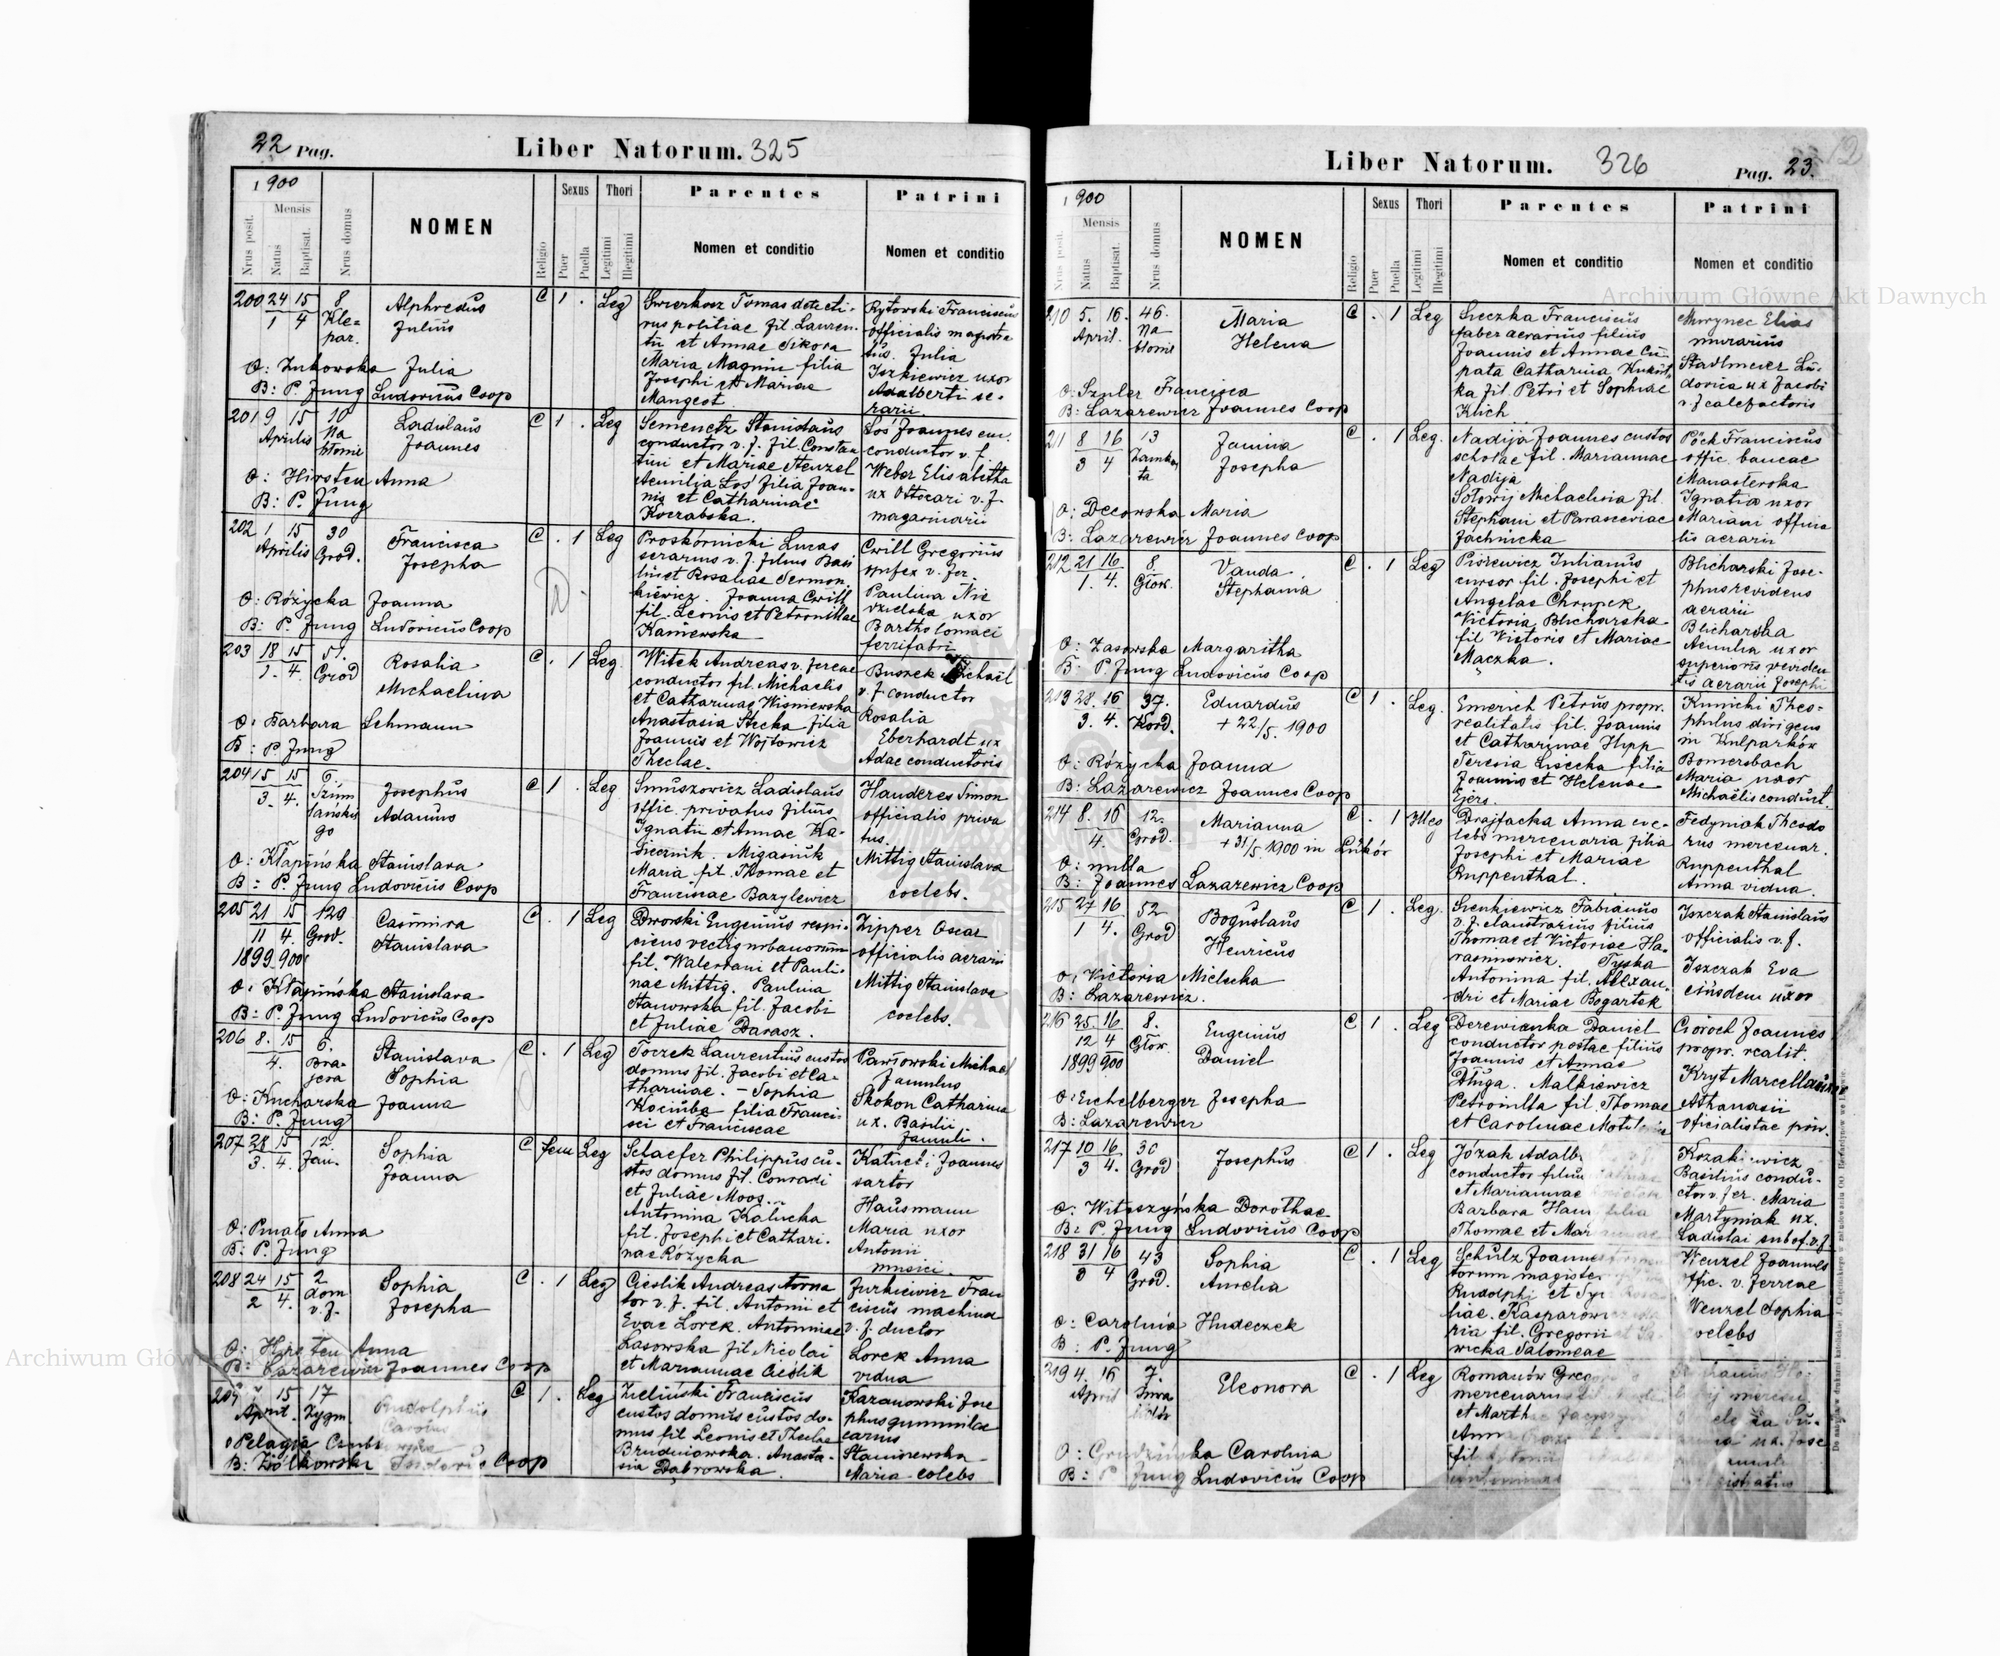 22 Pag.
Liber Natorum. 325
1900
Nrus posit.
Mensis
Natus
Baptisat.
Nrus domus
NOMEN
Religio
Sexus
Puer
Puella
Thori
Legitimi
Illegitimi
Parentes
Nomen et conditio
Patrini
Nomen et conditio
200 24 15 8
1 4 Kle=
par.
Alphredus
Julius
C 1 . Leg
Swierkosz Tomas detecti-
rus politiae fil. Lauren-
tii et Annae Sikora
Maria Magnin filia
Josephi et Mariae
Mangeot
Rytowski Franciscus
officialis magistra
tus. Julia
Iszkiewicz uxor
Adalberti se-
rarii.
O: Zukowska Julia
B: P. Jung Ludovicus Coop
201 9 15 10
Aprilis Na
błonie
Ladislaus
Joannes
C 1 . Leg
Semenetz Stanislaus
conductor v. f. fil. Constan
tini et Mariae Stenzel
Aemilia Łoś filia Joan-
nis et Catharinae
Koczabska.
Łoś Joannes em.
conductor v. f.
Weber Elisabetha
ux Ottocari v. f.
magazinarii
O: Hirsten Anna
B: P. Jung
202 1 15 30
Aprilis Grod.
Francisca
Josepha
C . 1 Leg
Proskórnicki Lucas
serarius v. f. filius Basi
lii et Rosaliae Sermon
kiewicz. Joanna Cwill
fil. Leonis et Petronillae
Kaniewska
Cwill Gregorius
opifex v. fer.
Paulina Nie
dzielska uxor
Bartholomaei
ferrifabri
O: Różycka Joanna
B: P. Jung Ludovicus Coop
203 18 15 51.
1. 4. Grod
Rosalia
Michaelina
C . 1 Leg.
Witek Andreas v. ferreae
conductor fil. Michaelis
et Catharinae Wisniewska
Anastasia Stecka filia
Joannis et Wojtowicz
Theclae.
Busrek Michael
v. f. conductor
Rosalia
Eberhardt ux
Adae conductoris
O: Barbara Lehmann
B: P. Jung
204 15 15 6.
3. 4. Szum
lańskie
go
Josephus
Adamus
C 1 . Leg
Smuszowicz Ladislaus
offic. privatus filius
Ignatii et Annae Ka-
siecznik. Migasiuk
Maria fil. Thomae et
Franciscae Bazylewicz
Hauderes Simon
officialis priva
tus.
Mittig Stanislava
coelebs.
O: Kłapińska Stanislava
B: P. Jung Ludovicus Coop
205 21 15 129
11 4. Grod.
1899 900
Casimira
Stanislava
C . 1 Leg
Dworski Eugenius respi-
ciens vectig urbanorum
fil. Waleriani et Pauli-
nae Mittig. Paulina
Stanowska fil. Jacobi
et Juliae Darasz.
Zipper Oscar
officialis aerarii
Mittig Stanislava
coelebs.
O: Kłapińska Stanislava
B: P. Jung Ludovicus Coop
206 8. 15 6.
4. Bra-
jera
Stanislava
Sophia
C . 1 Leg
Toczek Laurentius custos
domus fil. Jacobi et Ca-
tharinae. - Sophia
Kociuba filia Franci-
sci et Franciscae
Pawłowski Michael
famulus
Skokon Catharina
ux. Basilii
famuli.
O: Kucharska Joanna
B: P. Jung
207 28 15 12
3. 4. Jan.
Sophia
Joanna
C fem Leg
Schaefer Philippus cu-
stos domus fil. Conradi
et Juliae Moos.
Antonina Kałucka
fil. Josephi et Cathari-
nae Różycka
Kałucki Joannes
sartor
Hausmann
Maria uxor
Antonii
musici.
O: Pmało Anna
B: P. Jung
208 24 15 2
2 4. dom
v. f.
Sophia
Josepha
C . 1 Leg
Cieslik Andreas torna
tor v. f. fil. Antonii et
Evae Lorek. Antoninae
Lasowska fil. Nicolai
et Mariannae Cieślik
Jurkiewicz Fran
ciscus machinae
v. f. ductor
Lorek Anna
vidua
O: Hirsten Anna
B: Lazarewicz Joannes Coop
209 15 17
April. Zygm.
Rudolphus
Carolus
C 1 . Leg
Zieliński Franciscus
custos domus custos do-
mus fil Leonis et Theclae
Brudniowska. Anasta-
sia Dąbrowska.
Kazanowski Jose
phus gummila
carius
Stanowewska
Maria coelebs
O Pelagia
B: Ziółkowski Isidorus Coop
Liber Natorum. 326
Pag. 23.
1900
Nrus posit.
Mensis
Natus
Baptisat.
Nrus domus
NOMEN
Religio
Sexus
Puer
Puella
Thori
Legitimi
Illegitimi
Parentes
Nomen et conditio
Patrini
Nomen et conditio
210 5. 16. 46.
April. Na
błonie
Maria
Helena
C . 1 Leg
Sieczka Franciscus
faber aerarius filius
Joannis et Annae Cu-
pata Catharina Kukuł-
ka fil. Petri et Sophiae
Klich
Mwrynec Elias
murarius
Stadtmeier Lu-
dovica ux Jacobi
v. f calefactoris
O: Sznler Francisca
B: Lazarewicz Joannes Coop
211 8 16 13
3 4 Zamkn
ta
Janina
Josepha
C . 1 Leg.
Nadija Joannes custos
scholae fil. Mariannae
Nadija
Sołowij Michaelina fil.
Stephani et Parasceviae
Jachnicka
Pöck Franciscus
offic. bancae
Manasterska
Ignatia uxor
Mariani officia
lis aerarii
O: Decowska Maria
B: Lazarewicz Joannes Coop
212 21 16 8.
1. 4. Głow.
Vanda
Stephania
C . 1 Leg
Piórewicz Julianus
cursor fil. Josephi et
Angelae Chrupek
Victoria Blicharska
fil Victoris et Mariae
Mączka.
Blicharski Jose-
phus revidens
aerarii
Blicharska
Aemilia uxor
superioris reviden
tis aerarii Josephi
O: Zasowska Margaritha
B: P. Jung Ludovicus Coop
213 28. 16 37.
3. 4. Kord.
Eduardus
+ 22/5. 1900
C 1 . Leg.
Emerich Petrus propr.
realitatis fil. Joannis
et Catharinae Hipp
Teresia Lisecka filia
Joannis et Helenae
Ejers.
Kunicki Theo-
philus dirigens
in Kulparków
Bomersbach
Maria uxor
Michaelis conduct.
O: Różycka Joanna
B: Lazarewicz Joannes Coop
214 8. 16 12.
4. Grod.
Marianna
+ 31/5. 1900 in Lukór
C . 1 Illeg
Drajfacka Anna coe-
lebs mercenaria filia
Josephi et Mariae
Ruppenthal.
Fedyniak Theodo
rus mercenar.
Ruppenthal
Anna vidua.
O: nulla
B: Joannes Lazarewicz Coop
215 27 16 52
1 4. Grod
Boguslaus
Henricus
C 1 . Leg.
Sienkiewicz Fabianus
v. f. claustrarius filius
Thomae et Victoriae Ha-
rasimowicz. Tyska
Antonina fil. Alexan-
dri et Mariae Bogartek
Iszczak Stanislaus
officialis v. f.
Iszczak Eva
eiusdem uxor
O: Victoria Mielecka
B: Lazarewicz.
216 25 16 8.
12 4 Głow.
1899 900
Eugenius
Daniel
C 1 . Leg
Derewianka Daniel
conductor postae filius
Joannis et Annae
Długa. Malkiewicz
Petronilla fil. Thomae
et Carolinae
Ciöroch Joannes
propr. realit.
Kryt Marcellina
Athanasii
officialistae priv.
O: Eichelberger Josepha
B: Lazarewicz
217 10 16 30
3 4. Grod
Josephus
C 1 . Leg
Józak Adalb
conductor filius
et Mariannae
Barbara filia
Thomae et
Kozakiewicz
Basilius condu-
ctor v. fer. Maria
Martyniak ux.
Ladislai subof. v. f.
O: Witoszyńska Dorothae
B: P. Jung Ludovicus Coop
218 31 16 43
3 4 Grod.
Sophia
Amelia
C . 1 Leg
Schulz Joannes
torum magister
Rudolphi et
liae. Kasparowicz
ria fil. Gregorii
wicka Salomeae
Wenzel Joannes
offic. v. ferreae
Wenzel Sophia
coelebs
O: Carolina Hudeczek
B: P. Jung
219 4. 16 7.
April
Eleonora
C . 1 Leg
Romanów
mercenarius
et Marth
Anna
fil
O: Grudzińska Carolina
B: P. Jung Ludovicus Coop
Archiwum Główne Akt Dawnych
Archiwum Główne Akt Dawnych